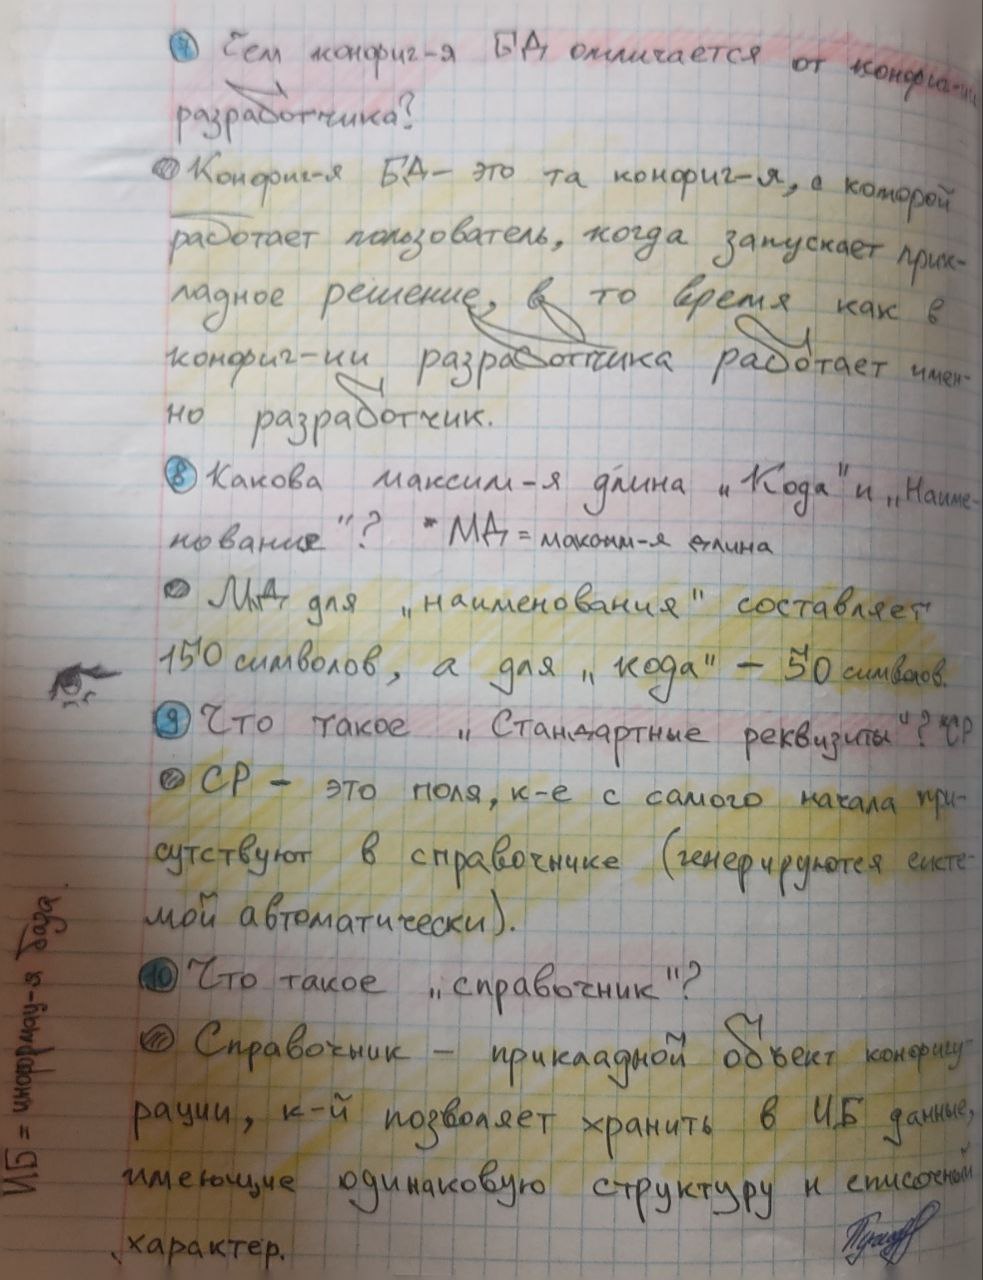 7 Чем конфиг-я БД отличается от конфиг-ии
разработчика?
Конфиг-я БД - это та конфиг-я, с которой
работает пользователь, когда запускает прик-
ладное решение, в то время как в
конфиг-ии разработчика работает имен-
но разработчик.
8 Какова максим-я длина „Кода" и „Наиме-
нование"? * МД = максим-я длина
МД для „наименования" составляет
150 символов, а для „кода" - 50 символов.
9 Что такое „Стандартные реквизиты"? *СР
СР - это поля, к-е с самого начала при-
сутствуют в справочнике (генерируются систе-
мой автоматически).
10 Что такое „справочник"?
Справочник - прикладной объект конфигу-
рации, к-й позволяет хранить в ИБ данные,
имеющие одинаковую структуру и списочный
характер.
ИБ = информац-я база